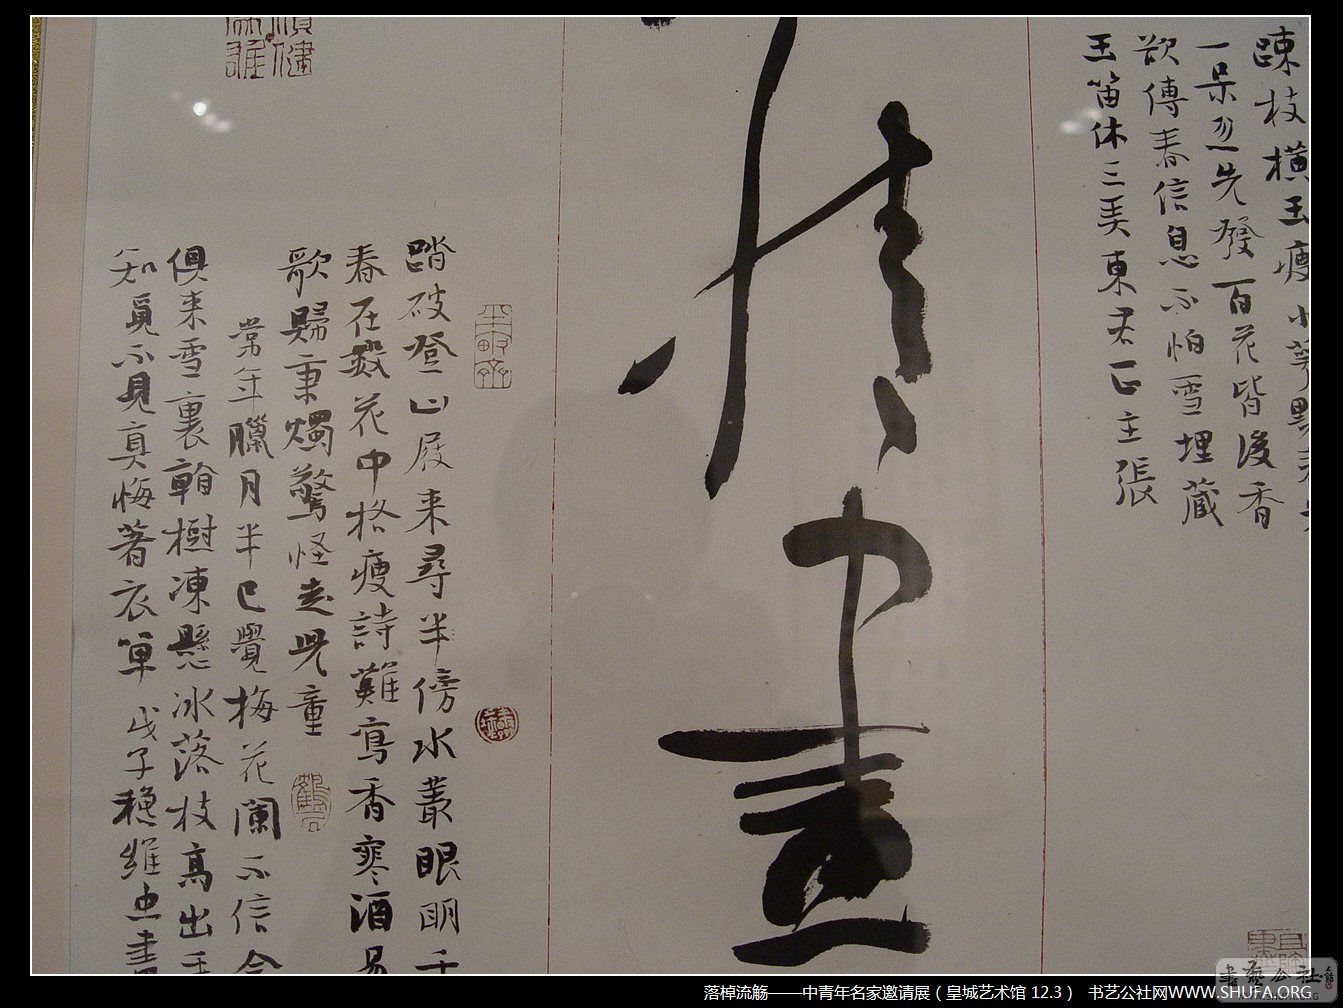 踈枝橫玉瘦小萼點珠光
一朶忽先發百花皆後香
欲傳春信息不怕雪埋藏
玉笛休三弄東君正主張
踏破登山屐來尋半傍水叢眼明千
春在數花中格瘦詩難寫香寒酒易
歌歸秉燭驚怪走児童
常年臘月半已覺梅花闌不信今
俱來雪裏看樹凍懸冰落枝高出手
知覓不見真悔著衣單 戊子穆維忠書
落棹流觞——中青年名家邀请展（皇城艺术馆 12.3） 书艺公社网WWW.SHUFA.ORG